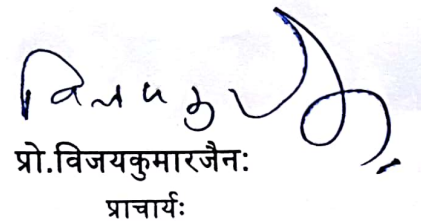 प्रो.विजयकुमारजैन:
प्राचार्यः